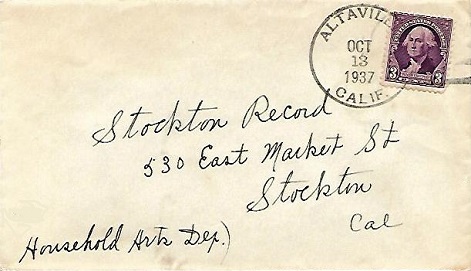 ALTAVILL
OCT
13
1937
CALIF.
3 3
Stockton Record
530 East Market St
Stockton
Cal
Household Arts Dep.)